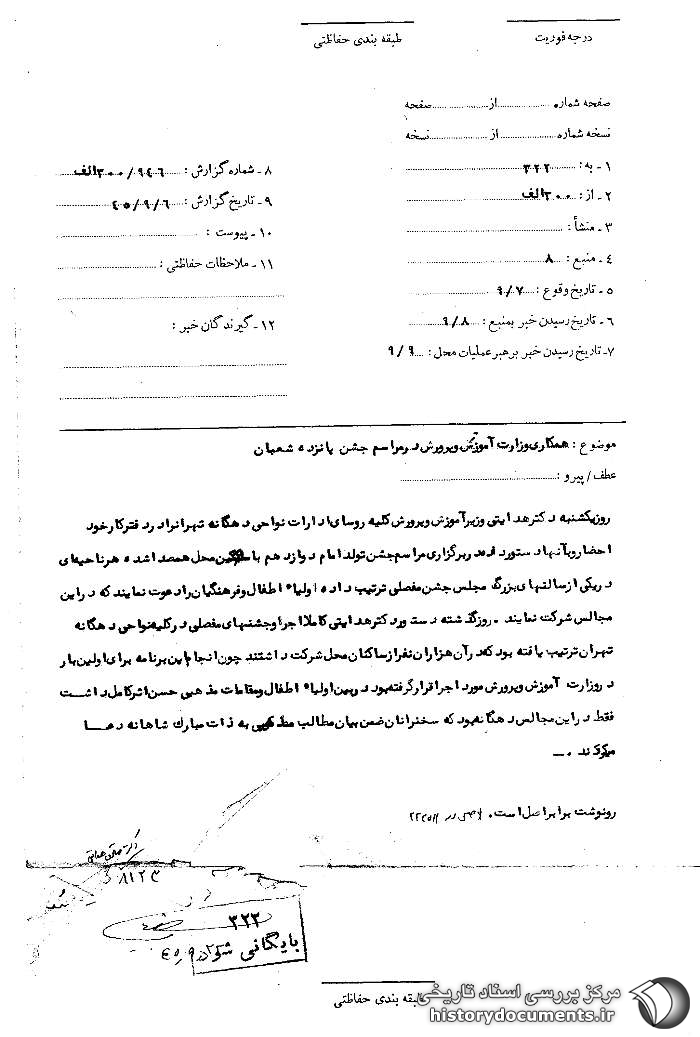 درجه فوریت
طبقه بندی حفاظتی
صفحه شماره ........ از ........ صفحه
نسخه شماره ........ از ........ نسخه
۱ - به : ۳۲۲
۲ - از : ۳۰۰الف
۳ - منشأ :
۴ - منبع : ۸
۵ - تاریخ وقوع : ۹/۷
۶ - تاریخ رسیدن خبر بمنبع : ۹/۸
۷ - تاریخ رسیدن خبر برهبر عملیات محل : ۹/۹
۸ - شماره گزارش : ۳۰۰/۹۴۶الف
۹ - تاریخ گزارش : ۴۵/۹/۶
۱۰ - پیوست :
۱۱ - ملاحظات حفاظتی :
۱۲ - گیرندگان خبر :
موضوع : همکاری وزارت آموزش وپرورش درمراسم جشن پانزده شعبان
عطف / پیرو :
روزیکشنبه دکترهدایتی وزیرآموزش وپرورش کلیه روسای ادارات نواحی دهگانه تهرانرادردفترکارخود
احضاروبآنهادستورداد دربرگزاری مراسم جشن تولدامام دوازدهم با محل همصداشده هرناحیه‌ای
دریکی ازسالنهای بزرگ مجلس جشن مفصلی ترتیب داده اولیاء اطفال وفرهنگیان رادعوت نمایندکه دراین
مجالس شرکت نمایند . روزگذشته دستوردکترهدایتی کاملااجراوجشنهای مفصلی درکلیه نواحی دهگانه
تهران ترتیب یافته بودکه درآن هزاران نفرازساکنان محل شرکت داشتند چون انجام این برنامه برای اولین بار
دروزارت آموزش وپرورش مورد اجراقرارگرفته بود دربین اولیاء اطفال ومقامات مذهبی حسن اثرکامل داشت
فقط دراین مجالس دهگانه بود که سخنرانان ضمن بیان مطالب مذهبی به ذات مبارك شاهانه دعا
میکردند . ـ
رونوشت برابراصل است . اصل در ۲۲۵۱۱
دکتر هدایتی
۸۱۲۳
۳۲۳
بایگانی شود
۴۵٫۹
طبقه بندی حفاظتی
مرکز بررسی اسناد تاریخی
historydocuments.ir